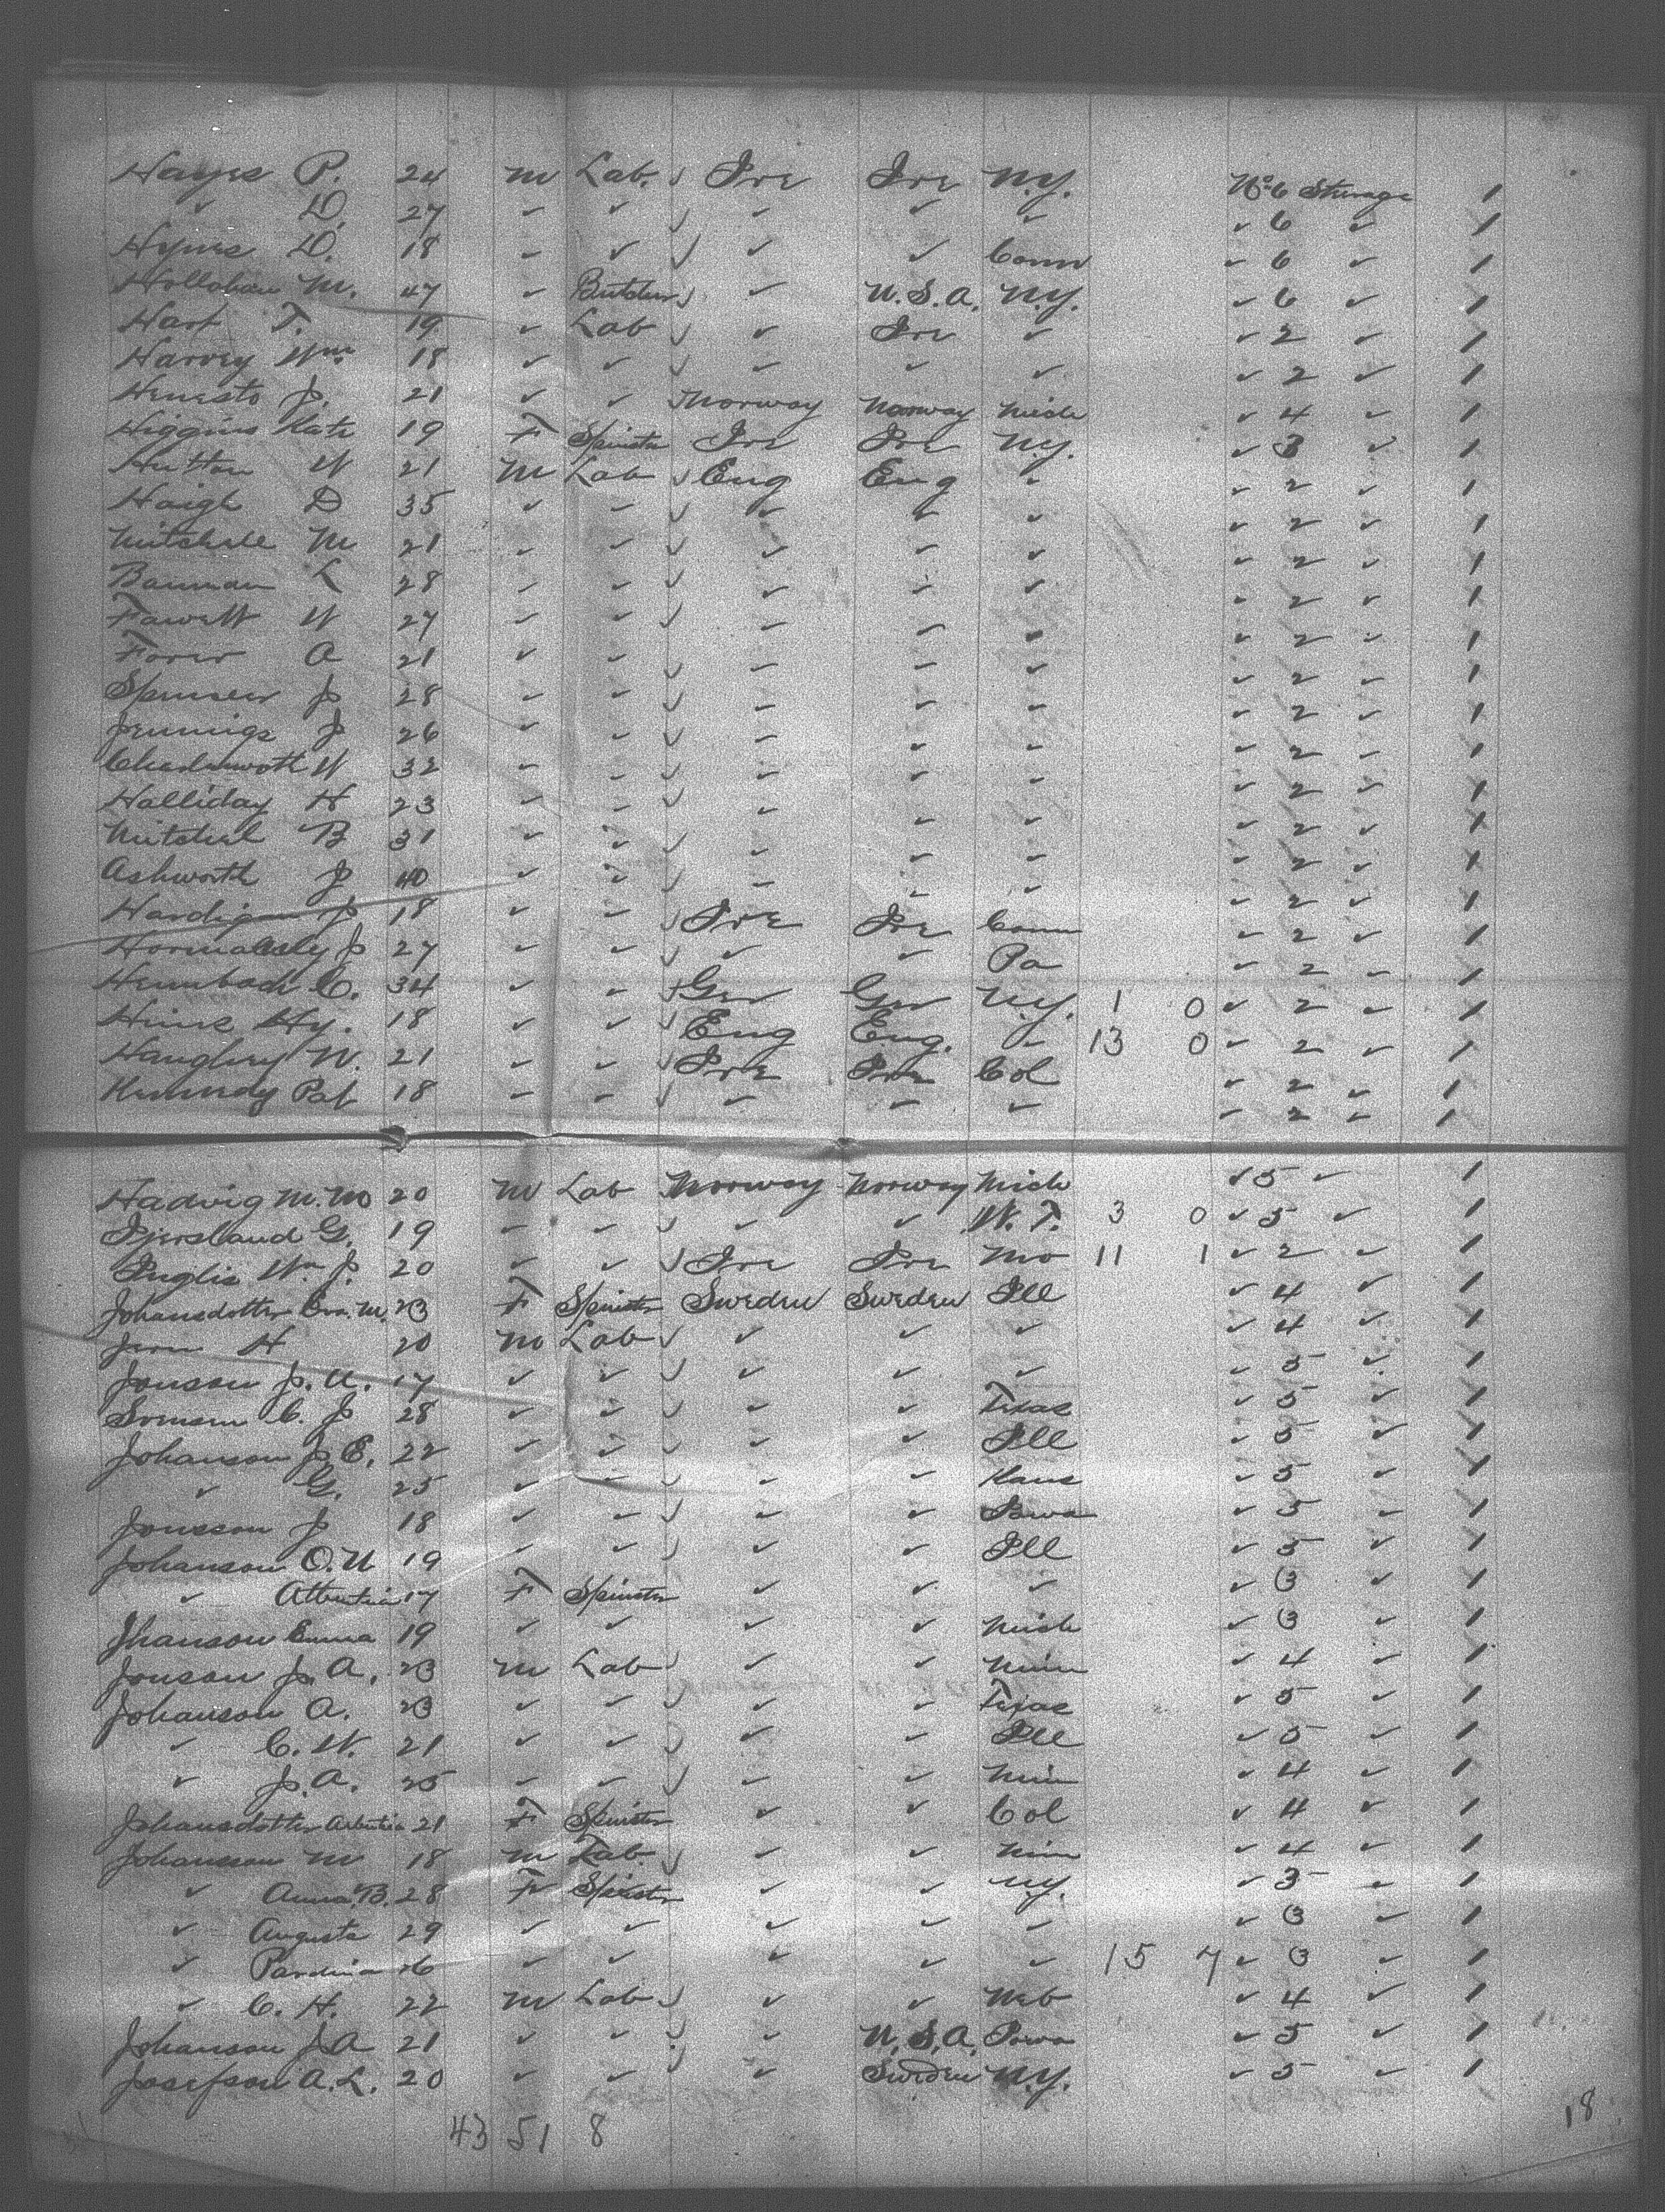 Hayes P. 24 M Lab. Ire Ire N.Y. No 6 Steerage 1
✓ D. 27 ✓ ✓ ✓ ✓ ✓ ✓ 6 ✓ 1
Hynes D. 18 ✓ ✓ ✓ ✓ Conn ✓ 6 ✓ 1
Hollahan M. 47 ✓ Butcher ✓ U.S.A. N.Y. ✓ 6 ✓ 1
Hart T. 19 ✓ Lab ✓ Ire ✓ ✓ 2 ✓ 1
Harvey Wm 18 ✓ ✓ ✓ ✓ ✓ ✓ 2 ✓ 1
Henesto J. 21 ✓ ✓ Norway Norway Mich ✓ 4 ✓ 1
Higgins Kate 19 F Spinster Ire Ire N.Y. ✓ 3 ✓ 1
Hutton W 21 M Lab Eng Eng ✓ ✓ 2 ✓ 1
Haigh D 35 ✓ ✓ ✓ ✓ ✓ ✓ 2 ✓ 1
Mitchell M 21 ✓ ✓ ✓ ✓ ✓ ✓ 2 ✓ 1
Bauman L 28 ✓ ✓ ✓ ✓ ✓ ✓ 2 ✓ 1
Fawett W 27 ✓ ✓ ✓ ✓ ✓ ✓ 2 ✓ 1
A 21 ✓ ✓ ✓ ✓ ✓ ✓ 2 ✓ 1
Spenser J 28 ✓ ✓ ✓ ✓ ✓ ✓ 2 ✓ 1
Jennings J 26 ✓ ✓ ✓ ✓ ✓ ✓ 2 ✓ 1
Charlesworth W 32 ✓ ✓ ✓ ✓ ✓ ✓ 2 ✓ 1
Halliday H 23 ✓ ✓ ✓ ✓ ✓ ✓ 2 ✓ 1
Mitchel B 31 ✓ ✓ ✓ ✓ ✓ ✓ 2 ✓ 1
Ashworth J 40 ✓ ✓ ✓ ✓ ✓ ✓ 2 ✓ 1
Hardigan J 18 ✓ ✓ Ire Ire Conn ✓ 2 ✓ 1
J 27 ✓ ✓ ✓ ✓ Pa ✓ 2 ✓ 1
Heimbach C. 34 ✓ ✓ Ger Ger N.Y. 1 0 ✓ 2 ✓ 1
Hy. 18 ✓ ✓ Eng Eng. ✓ 13 0 ✓ 2 ✓ 1
Haughey W. 21 ✓ ✓ Ire Ire Col ✓ 2 ✓ 1
Kennedy Pat 18 ✓ ✓ ✓ ✓ ✓ ✓ 2 ✓ 1
Hadvig M.M 20 M Lab Norway Norway Mich ✓ 5 ✓ 1
Bjersland G. 19 ✓ ✓ ✓ ✓ W.T. 3 0 ✓ 5 ✓ 1
Inglis Wm J. 20 ✓ ✓ Ire Ire Mo 11 1 ✓ 2 ✓ 1
Johansdotter Eva. M. 23 F Spinster Sweden Sweden Ill ✓ 4 ✓ 1
Jern H 20 M Lab ✓ ✓ ✓ ✓ 4 ✓ 1
Jonson J.A. 17 ✓ ✓ ✓ ✓ ✓ ✓ 5 ✓ 1
C. J 28 ✓ ✓ ✓ ✓ Texas ✓ 5 ✓ 1
Johanson J.E. 22 ✓ ✓ ✓ ✓ Ill ✓ 5 ✓ 1
✓ G. 25 ✓ ✓ ✓ ✓ Kans ✓ 5 ✓ 1
Jonsson J 18 ✓ ✓ ✓ ✓ Iowa ✓ 5 ✓ 1
Johanson O.U 19 ✓ ✓ ✓ ✓ Ill ✓ 5 ✓ 1
✓ Albertina 17 F Spinster ✓ ✓ ✓ ✓ 3 ✓ 1
Jhanson Emma 19 ✓ ✓ ✓ ✓ Mich ✓ 3 ✓ 1
Jonson J.A. 23 M Lab ✓ ✓ Minn ✓ 4 ✓ 1
Johanson A. 23 ✓ ✓ ✓ ✓ Texas ✓ 5 ✓ 1
✓ C.W. 21 ✓ ✓ ✓ ✓ Ill ✓ 5 ✓ 1
✓ J.A. 25 ✓ ✓ ✓ ✓ Min ✓ 4 ✓ 1
Johansdotter 21 F Spinster ✓ ✓ Col ✓ 4 ✓ 1
Johansson M 18 M Lab. ✓ ✓ Min ✓ 4 ✓ 1
✓ Anna B. 28 F Spinster ✓ ✓ N.Y. ✓ 3 ✓ 1
✓ Augusta 29 ✓ ✓ ✓ ✓ ✓ ✓ 3 ✓ 1
✓ 26 ✓ ✓ ✓ ✓ ✓ 15 7 ✓ 3 ✓ 1
✓ C.H. 22 M Lab ✓ ✓ Neb ✓ 4 ✓ 1
Johanson J.A 21 ✓ ✓ ✓ U.S.A. Iowa ✓ 5 ✓ 1
Josefson A.L. 20 ✓ ✓ ✓ Sweden N.Y. ✓ 5 ✓ 1
43 51 8
18